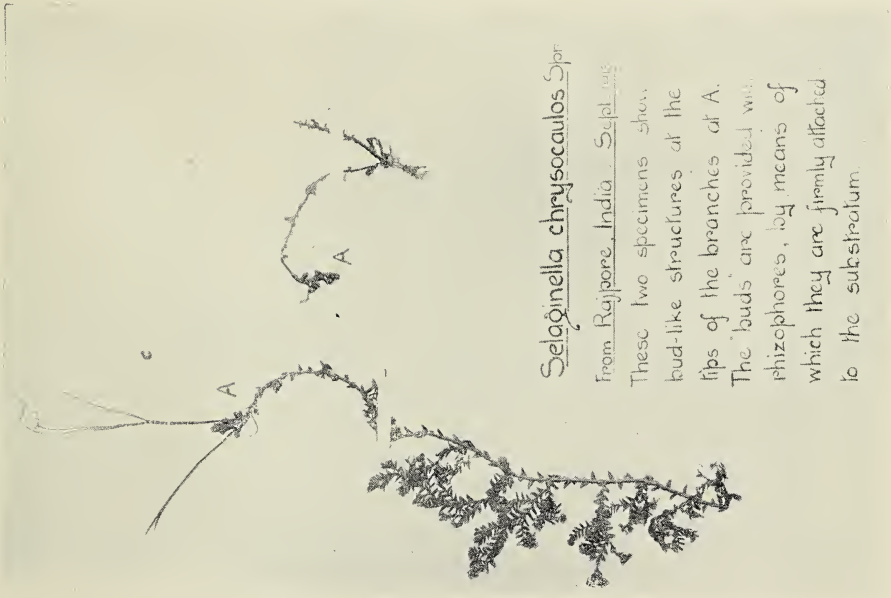 Selaginella chrysocaulos Spr
From Rajpore, India. Sept
These two specimens show
bud-like structures at the
tips of the branches at A.
The "buds" are provided with
rhizophores, by means of
which they are firmly attached
to the substratum.
A
A